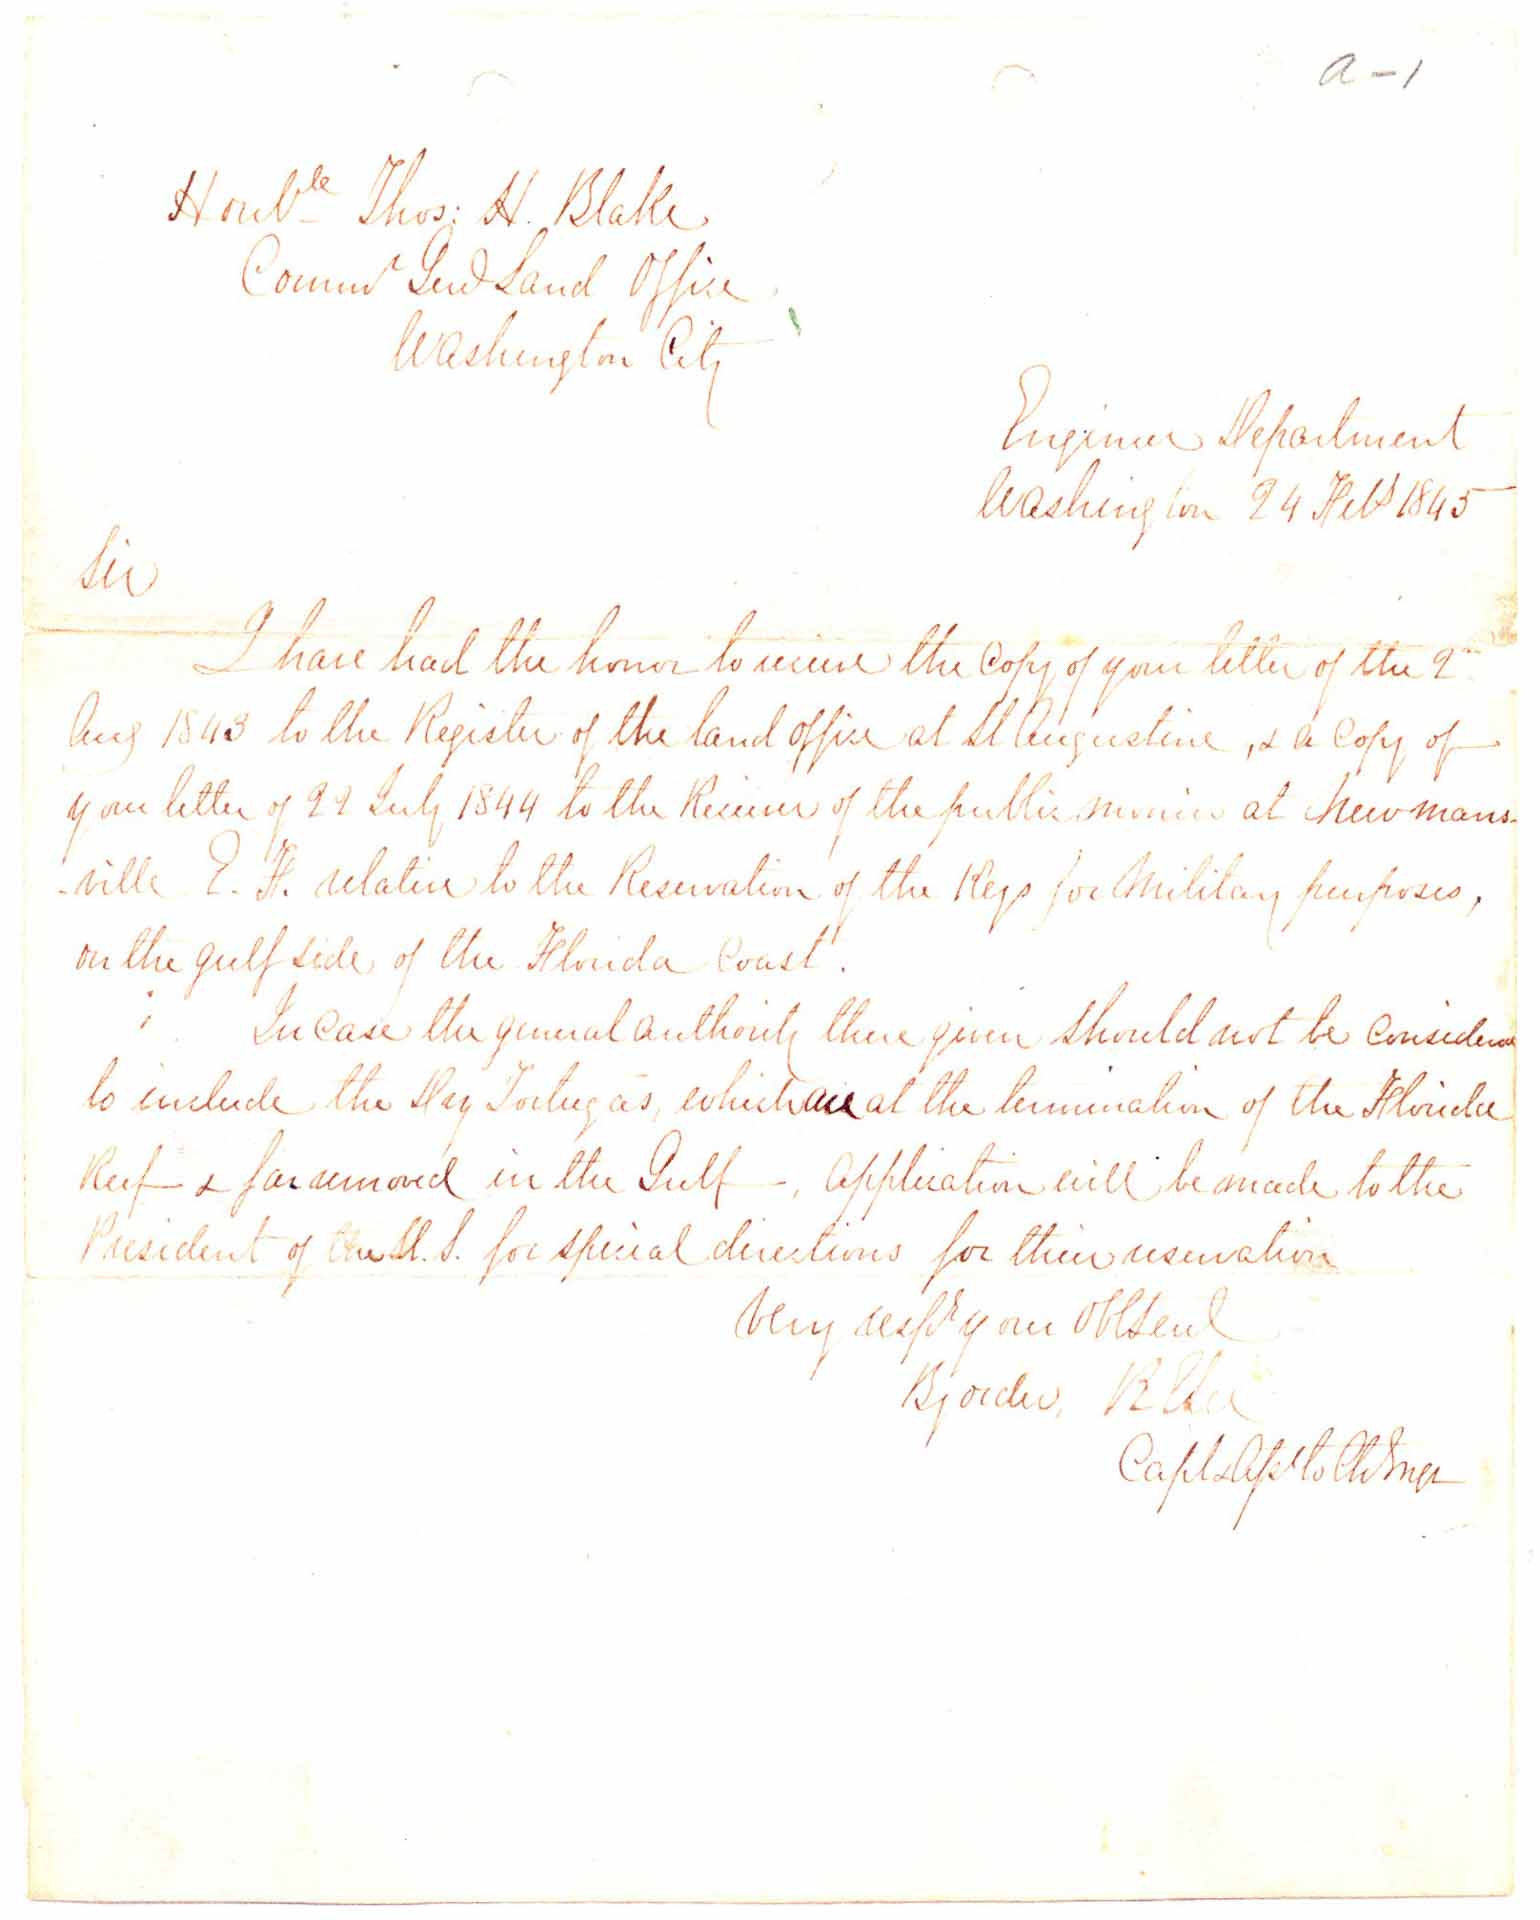 a-1
Honble Thos: H. Blake
Commr Genl Land Office
Washington City
Engineer Department
Washington 24 Feby 1845
Sir
I have had the honor to receive the Copy of your letter of the 2
Aug 1843 to the Register of the land office at St Augustine, & a Copy of
your letter of 22 July 1844 to the Receiver of the public monies at Newmans-
-ville E. F. relative to the Reservation of the Keys for Military purposes,
on the gulf side of the Florida Coast.
In case the general authority there given should not be Considered
to include the Dry Tortugas, which are at the termination of the Florida
Reef & far removed in the Gulf -, application will be made to the
President of the U.S. for special directions for their reservation
Very respy your Obt Sert
By order, R E Lee
Capt & Asst to Ch Engr